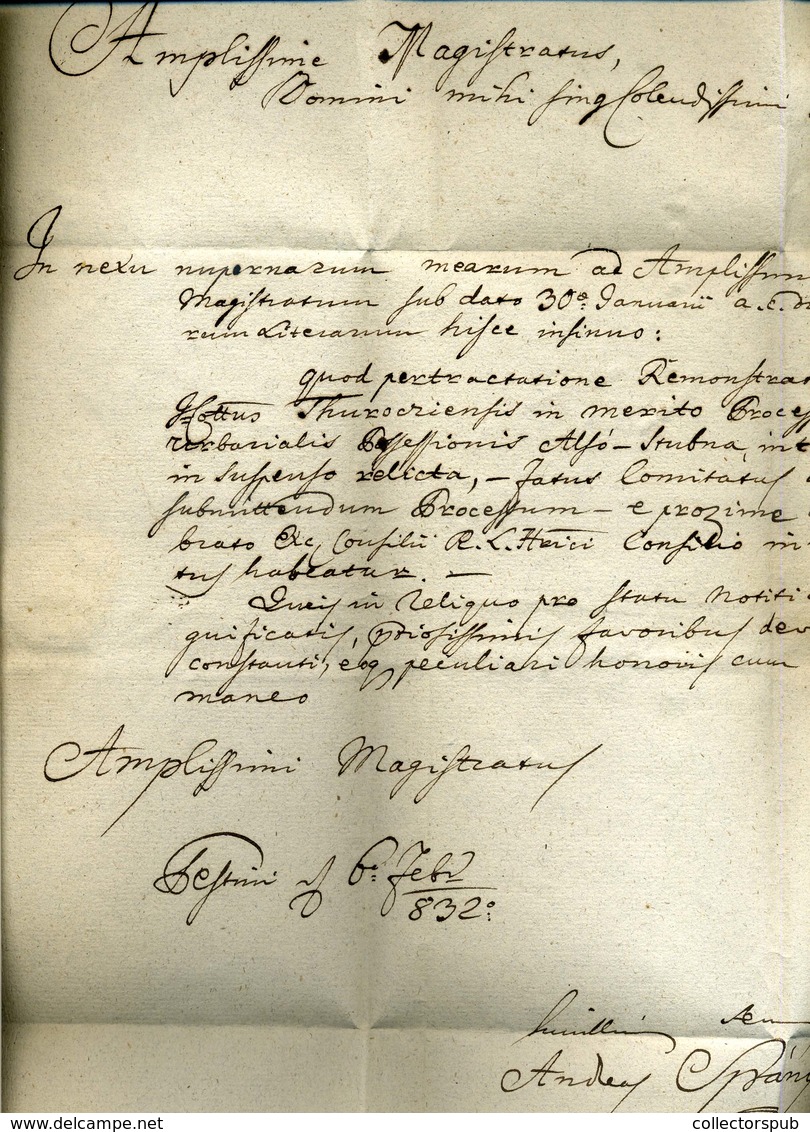 Amplissime Magistratus,
Domini mihi sing Colendissimi
In nexu nupernarum mearum ad Amplissim
Magistratum sub dato 30a Januarii a. c.
rum Literarum hisce insinuo:
quod pertractatione Remonstrat
Cottus Thurocziensis in merito Process
Urbarialis Possessionis Alsó-Stubna, int
in suspenso relicta, – Jatus Comitatus
submittendum Processum – e proxime
brato Exc. Consilii R. L. Htrici Consilio in
tus habeatur. —
Queis in reliquo pro statu notiti
guificatis, ptiosissimis favoribus dev
constanti, eoq peculiari honoris cum
maneo
Amplissimi Magistratus
Pestini 6a Febr
832o
humillimus
Andreas Sprány
collectorspub